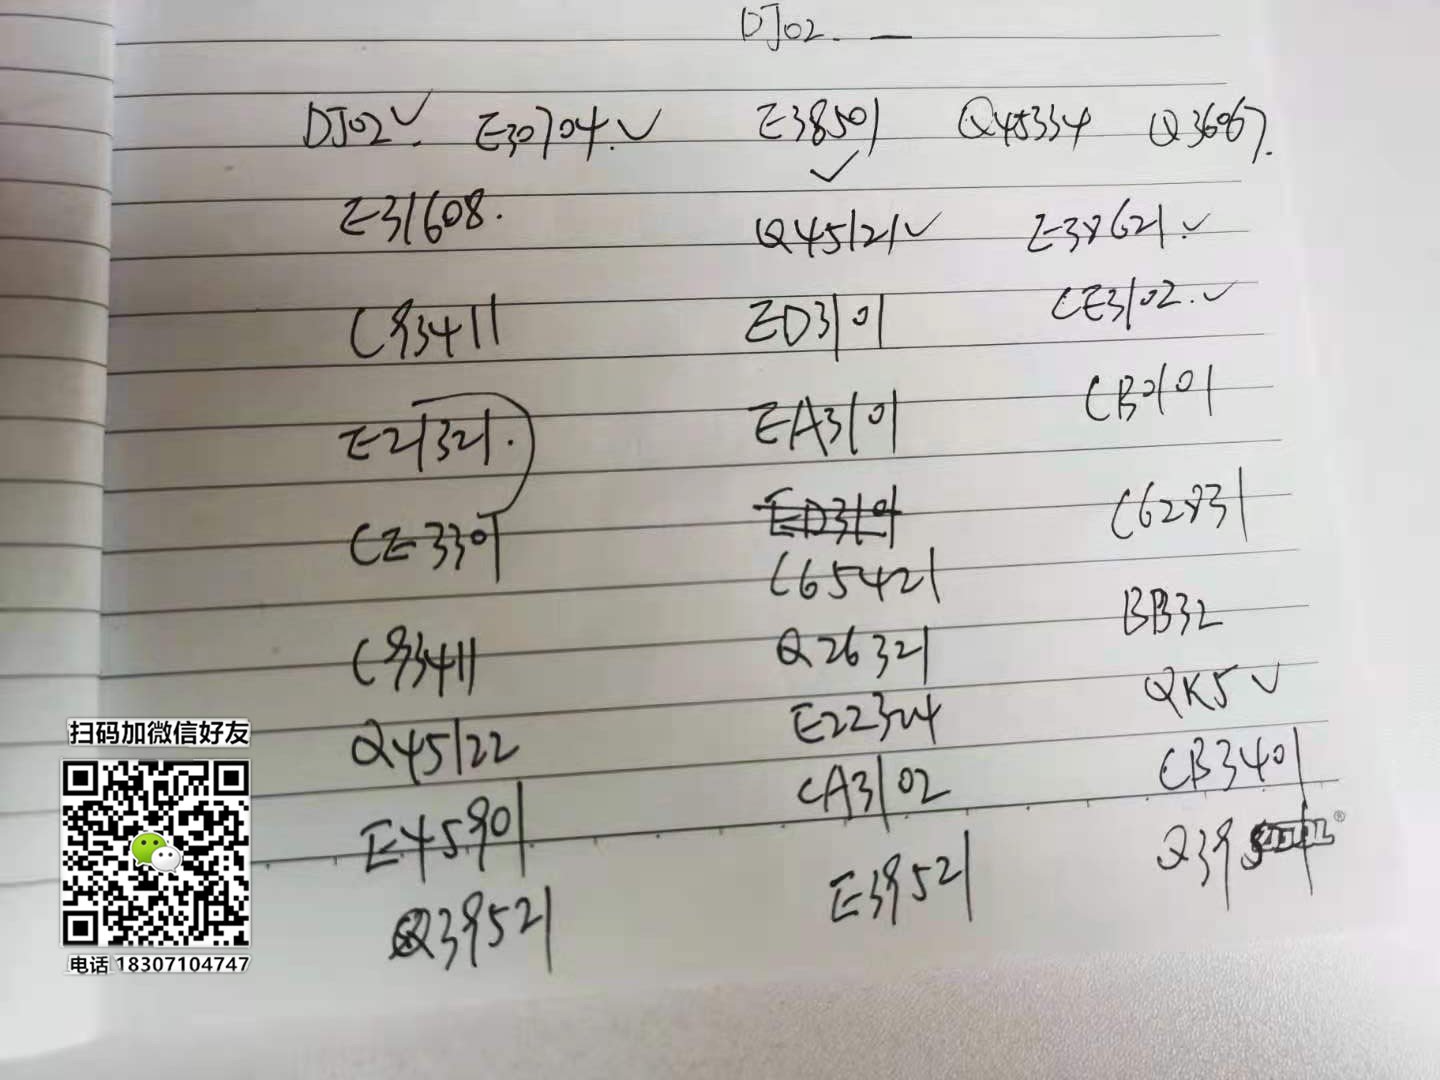 DJ02. —
DJ02✓. E30704.✓ E38501 ✓ Q45334 Q36067.
E31608. Q45121✓ E38621.✓
C93411 ED3101 CE3102.✓
E21321. EA3101 CB0101
CE3301 ED3101 C62831
C65421
C93411 Q26321 BB32
Q45122 E22324 QK5✓
E45901 CA3102 CB3401
Q39521 E39521 Q395
扫码加微信好友
电话 18307104747